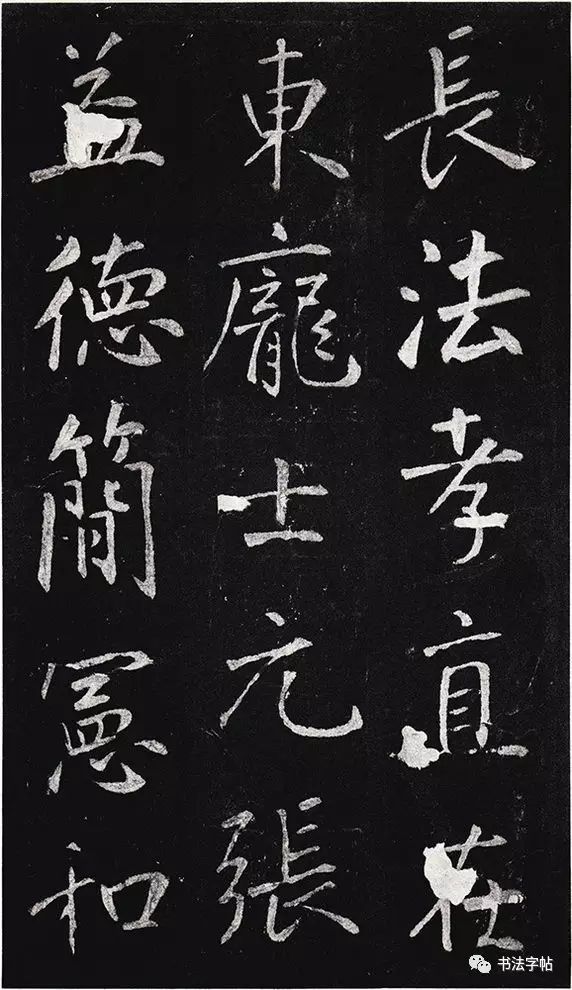 長法孝直在
東龐士元張
益德簡憲和
书法字帖